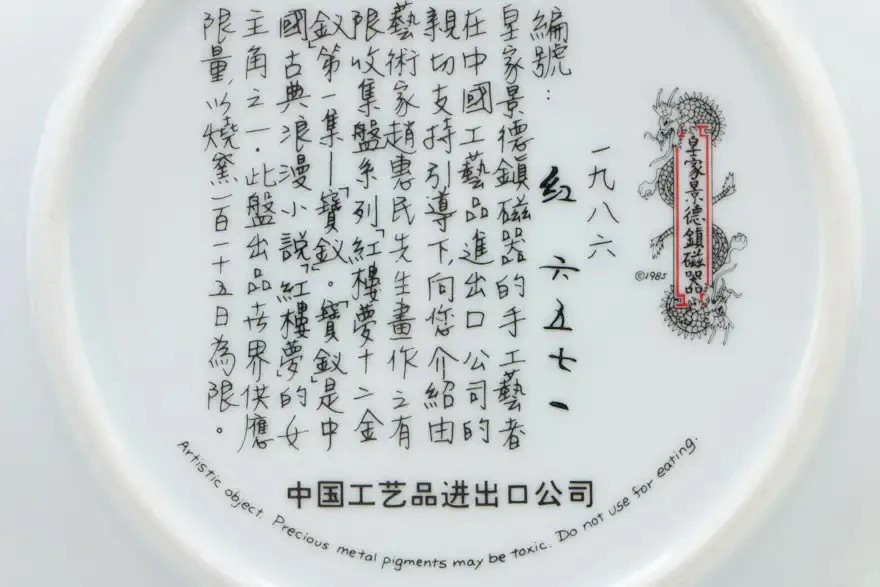 皇家景德鎮磁器
©1985
一九八六
編號: 紅 六五七一
皇家景德鎮磁器的手工藝者
在中國工藝品進出口公司的
親切支持引導下,向您介紹由
藝術家趙惠民先生畫作之有
限收集盤系列「紅樓夢十二金
釵」第一集—「寶釵」。「寶釵」是中
國古典浪漫小說「紅樓夢」的女
主角之一.此盤出品世界供應
限量,以燒窯一百一十五日為限。
中国工艺品进出口公司
Artistic object. Precious metal pigments may be toxic. Do not use for eating.